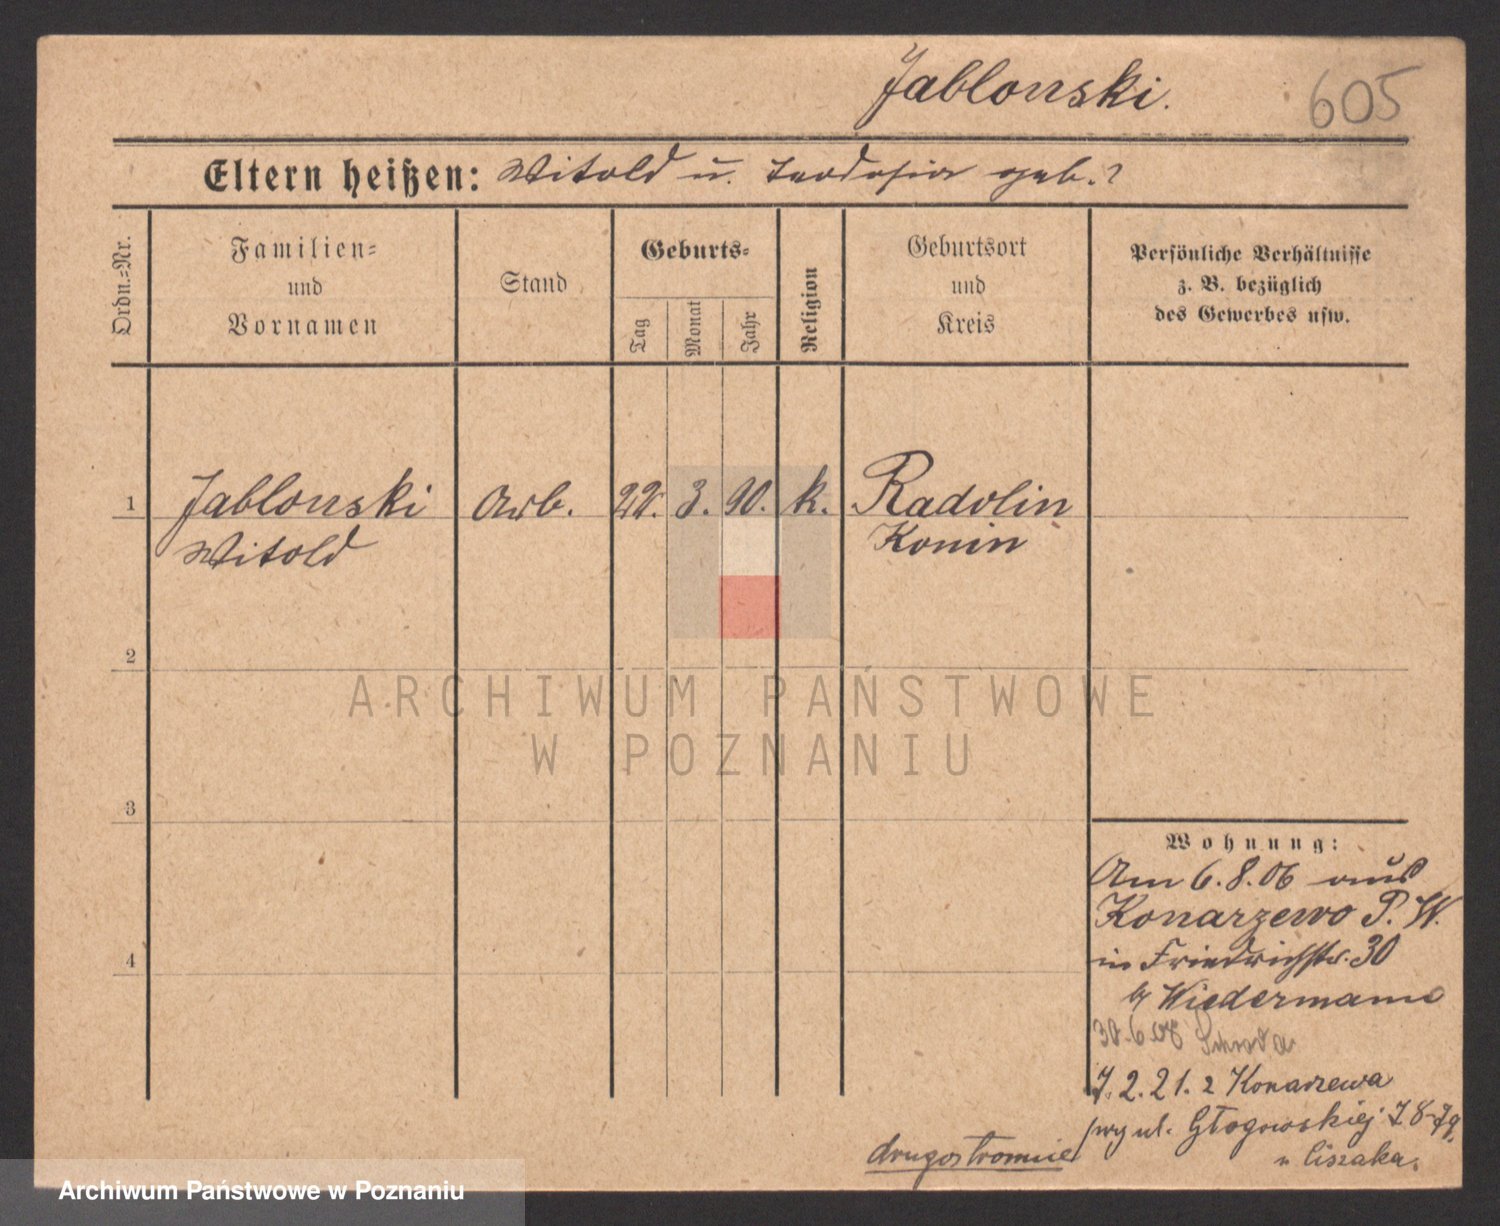 Jablonski.
605
Eltern heißen: Witold u. Teodosia geb.?
Ordn.=Nr.
Familien= und Vornamen
Stand
Geburts=
Tag
Monat
Jahr
Religion
Geburtsort und Kreis
Persönliche Verhältnisse
z. B. bezüglich
des Gewerbes usw.
1 Jablonski Arb. 22. 3. 90. k. Radolin
Witold Konin
2
3
4
ARCHIWUM PAŃSTWOWE
W POZNANIU
Wohnung:
Am 6.8.06 aus
Konarzewo P. W.
in Friedrichstr. 30
b/ Wiedermann
30.6.08 Schroda
7.2.21. z Konarzewa
przy ul. Głogowskiej 78-79
u Ciszaka.
drugostronnie
Archiwum Państwowe w Poznaniu